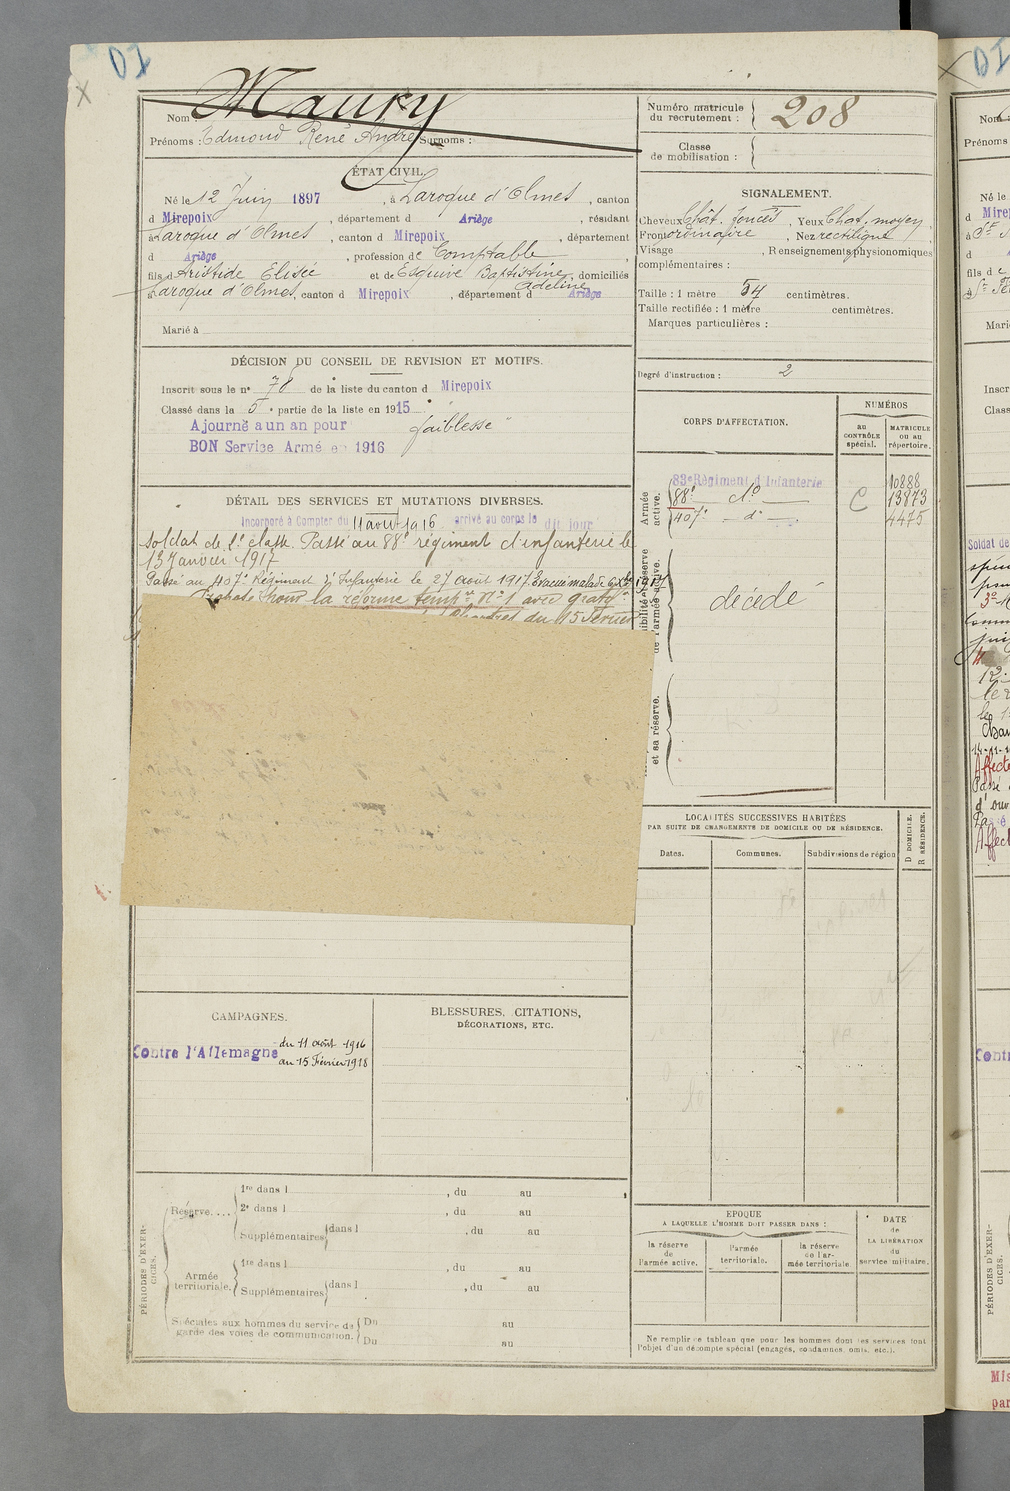 Nom : Maury
Prénoms : Edmond René André Surnoms :
Numéro matricule du recrutement : 208
Classe de mobilisation :
ÉTAT CIVIL.
Né le 12 Juin 1897, à Laroque d'Olmes, canton
d Mirepoix, département d Ariège, résidant
à Laroque d'Olmes, canton d Mirepoix, département
d Ariège, profession de Comptable
fils d'Aristide Elisée et de Esquive Baptistine Adeline, domiciliés
à Laroque d'Olmes, canton d Mirepoix, département d Ariège
Marié à
SIGNALEMENT.
Cheveux Chât. foncés, Yeux Chat. moyen,
Front ordinaire, Nez rectiligne,
Visage , Renseignements physionomiques
complémentaires :
Taille : 1 mètre 54 centimètres.
Taille rectifiée : 1 mètre centimètres.
Marques particulières :
Degré d'instruction : 2
DÉCISION DU CONSEIL DE REVISION ET MOTIFS.
Inscrit sous le nº 78 de la liste du canton d Mirepoix
Classé dans la 5e partie de la liste en 1915
Ajourné a un an pour faiblesse
BON Service Armé en 1916
DÉTAIL DES SERVICES ET MUTATIONS DIVERSES.
Incorporé à Compter du 11 août 1916 arrivé au corps le dit jour
soldat de 2e classe. Passé au 88e régiment d'infanterie le
13 Janvier 1917
Passé au 407e Régiment d'Infanterie le 27 août 1917. Evacué malade 1917
pour la réforme tempre Nº1 avec gratn
du 15 Février
CORPS D'AFFECTATION.
NUMÉROS
au CONTRÔLE spécial.
MATRICULE ou au répertoire.
Armée active.
83e Régiment d'Infanterie 10888
88e do C 13873
407e do 4475
de l'armée active.
décédé
et sa réserve.
LOCALITÉS SUCCESSIVES HABITÉES
PAR SUITE DE CHANGEMENTS DE DOMICILE OU DE RÉSIDENCE.
Dates.
Communes.
Subdivisions de région
D DOMICILE.
R RÉSIDENCE.
CAMPAGNES.
Contre l'Allemagne du 11 août 1916
au 15 Février 1918
BLESSURES, CITATIONS,
DÉCORATIONS, ETC.
PÉRIODES D'EXERCICES.
Réserve....
1re dans l , du au
2e dans l , du au
Supplémentaires dans l , du au
Armée territoriale.
1re dans l , du au
Supplémentaires dans l , du au
Spéciales aux hommes du service de Du au
garde des voies de communication. Du au
EPOQUE
A LAQUELLE L'HOMME DOIT PASSER DANS :
la réserve de l'armée active.
l'armée territoriale.
la réserve de l'armée territoriale
DATE
de
LA LIBÉRATION
du
service militaire.
Ne remplir ce tableau que pour les hommes dont les services font
l'objet d'un décompte spécial (engagés, condamnés, omis, etc.).